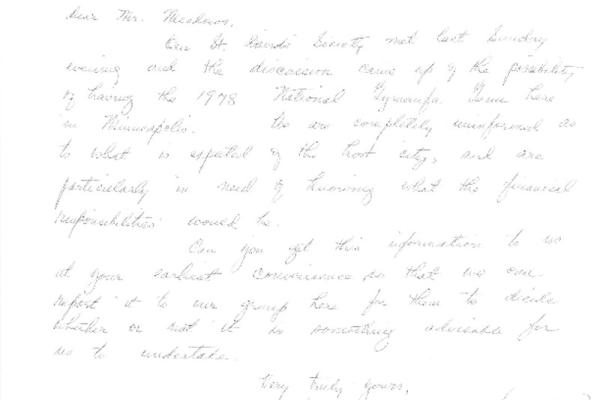 Dear Mr. Meadows,
Our St. David's Society met last Sunday
evening and the discussion came up of the possibility
of having the 1978 National Gymanfa Ganu here
in Minneapolis. We are completely uninformed as
to what is expected of the host city, and are
particularly in need of knowing what the financial
responsibilities would be.
Can you get this information to us
at your earliest convenience so that we can
report it to our group here for them to decide
whether or not it is something advisable for
us to undertake.
Very truly yours,